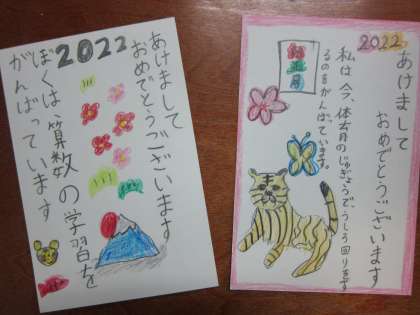 2022
あけまして
おめでとうございます
ぼくは、算数の学習を
がんばっています
2022
あけまして
おめでとうございます
私は今、体育のじゅぎょうで、うしろ回りをす
るのをがんばっています。